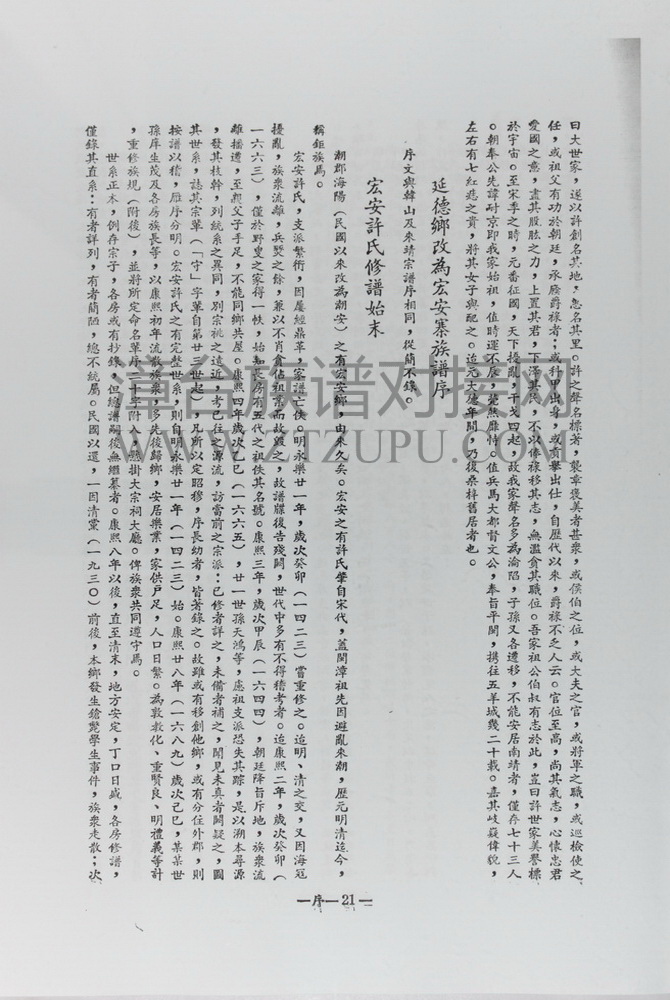 曰大世家，遂以許創名其地，忽名其里。許之聲名標著，襲章褒美者甚衆，或侯伯之位，或大夫之官，或將軍之職，或巡檢使之
任，或祖父有功於朝廷，承廕爵祿者；或科甲出身，或有舉出仕，自歷代以來，爵祿不乏人云。官位至高，尚其氣志，心懷忠君
愛國之意，盡其股肱之力，上置其君，下澤其民，不以俸祿移其志，無濫貪其職位。吾家祖公伯叔有志於此，豈曰許世家美譽標
於宇宙。至宋季之時，元番征國，天下擾亂，干戈四起，故我家聲名多為淪陷，子孫又各遷移，不能安居南靖者，僅存七十三人
。朝奉公先諱封京即我家始祖，值時運不辰，煢然靡恃，值兵馬大都督文公，奉旨平閩，携往五羊城幾二十載。嘉其岐嶷偉貌，
左右有七紅痣之貴，將其女子與配之。迨元大德年間，乃復桑梓舊居者也。
延德鄉改為宏安寨族譜序
序文與韓山及來靖宗譜序相同，從簡不錄。
宏安許氏修譜始末
潮郡海陽（民國以來改為潮安）之有宏安鄉，由來久矣。宏安之有許氏肇自宋代，蓋閩漳祖先因避亂來潮，歷元明清迄今，
稱鉅族焉。
宏安許氏，支派繁衍，因屢經鼎革，家譜亡佚。明永樂廿一年，歲次癸卯（一四二三）嘗重修之。迨明、清之交，又因海寇
擾亂，族衆流離，兵燹之餘，兼以不肖貪佔祖業而故毀之，故譜牒復告殘闕，世代中多有不得稽考者。迨康熙二年，歲次癸卯（
一六六三），僅於野叟之家得一帙，始知長房有五代之祖佚其名號。康熙三年，歲次甲辰（一六四四），朝廷降旨斥地，族衆流
離播遷，至親父子手足，不能同鄉共屋。康熙四年歲次乙巳（一六六五），廿一世孫天鴻等，慮祖支派恐失其踪，是以溯本尋源
，發其枝幹，列統系之異同，別宗祧之遠近，考已往之源流，訪當前之宗派：已修者詳之，未備者補之，聞見未真者闕疑之，圖
其世系，誌其宗輩（「守」字輩自第廿三世起），凡所以定昭穆，序長幼者，皆著錄之。故雖或有移創他鄉，或有分住外郡，則
按譜以稽，雁序分明。宏安許氏之有完整世系，則自明永樂廿一年（一四二三）始。康熙廿八年（一六八九）歲次己巳，某某世
孫庠生茂及各房族長等，以康熙初年流散族衆，多先後歸鄉，安居樂業，家供户足，人口日繁。為敦教化、重賢良、明禮義等計
，重修族規（附後），並將所定命名輩序二十字附入，懸掛大宗祠大廳。俾族衆共同遵守焉。
世系正本，例存宗子，各房或有抄錄，但總譜嗣後無繼纂者。康熙八年以後，直至清末，地方安定，丁口日盛，各房修譜，
僅錄其直系：有者詳列，有者簡陋，總不統屬。民國以還，一因清黨（一九三〇）前後，本鄉發生鎗斃學生事件，族衆走散；次
—序—21—
莆台族谱对接网
WWW.ZTZUPU.COM